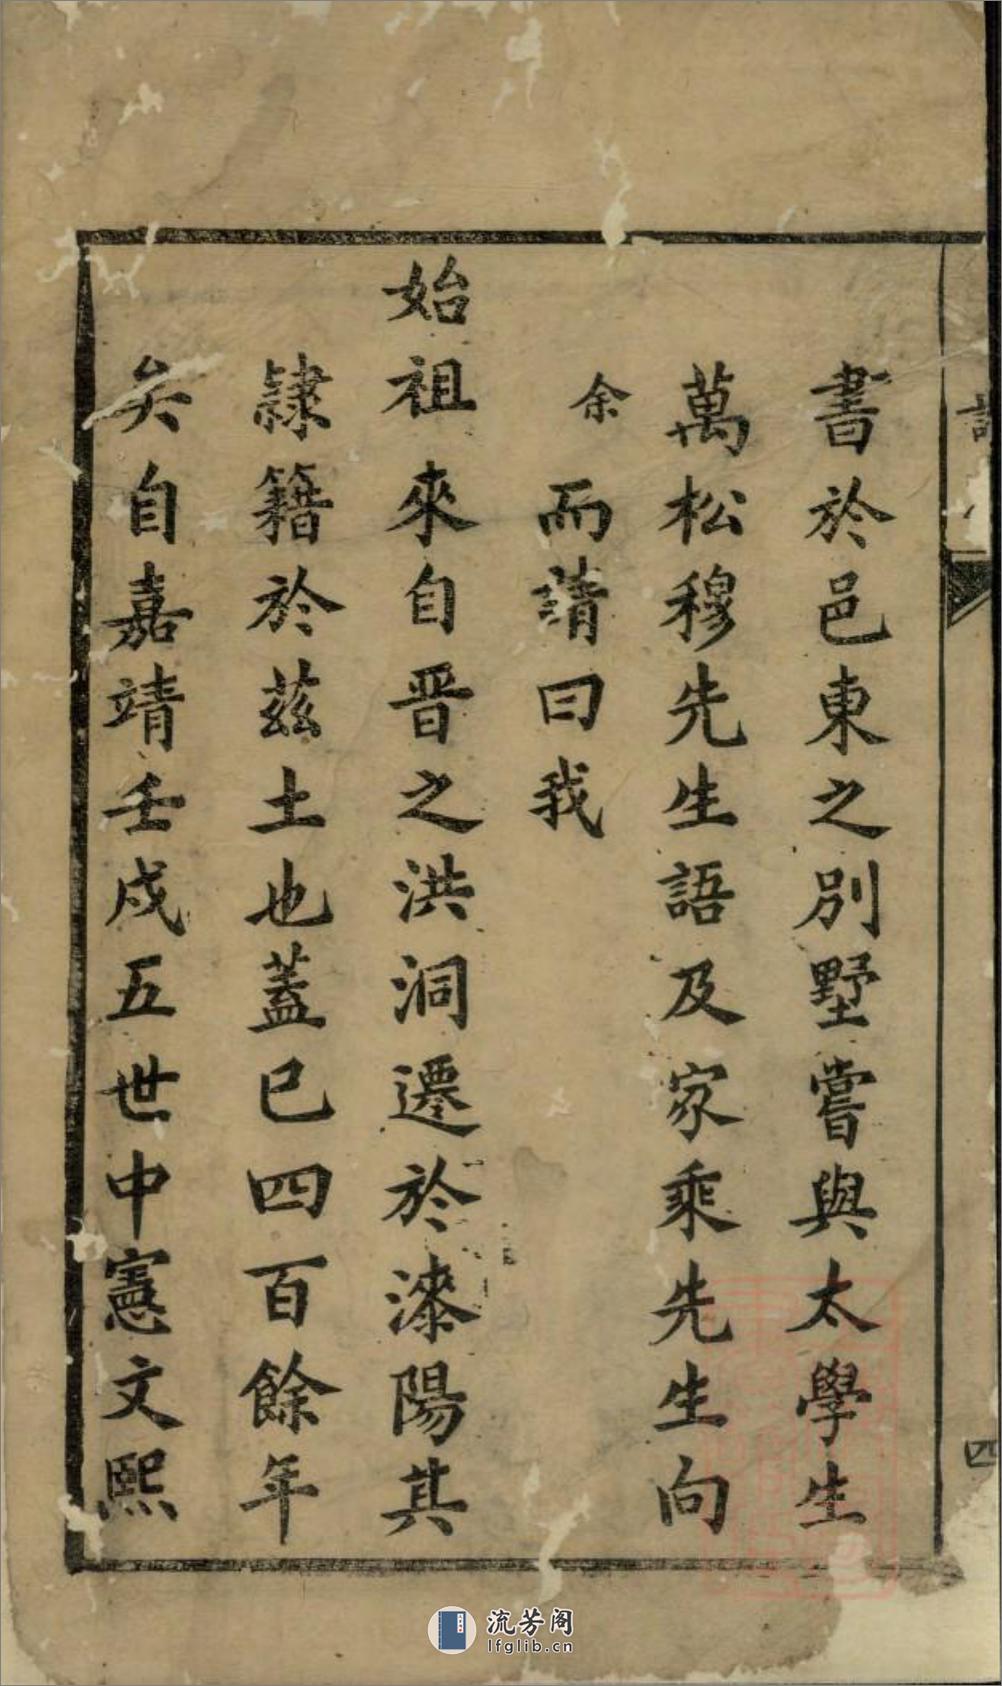 書於邑東之別墅嘗與太學生
萬松穆先生語及家乘先生向
余而請曰我
始祖來自晋之洪洞遷於漆陽其
隷籍於茲土也蓋已四百餘年
矣自嘉靖壬戌五世中憲文熙
四
流芳阁
lfglib.cn